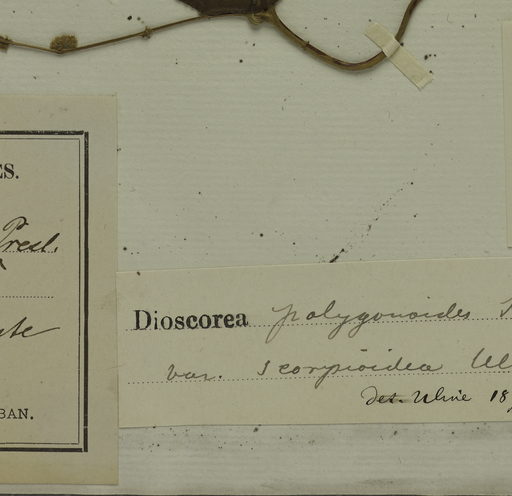 ES.
Presl.
BAN.
Dioscorea polygonoides
var. scorpioidea Ul
Det. Uline 18